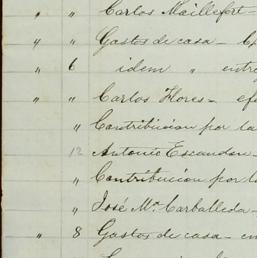 " " Carlos Maillefert -
" " Gastos de casa -
" 6 idem " entre
" " Carlos Flores - ef
" Contribucion por la
12 Antonio Escandon
" Contribución por l
" José Mª Carballeda -
" 8 Gastos de casa - en